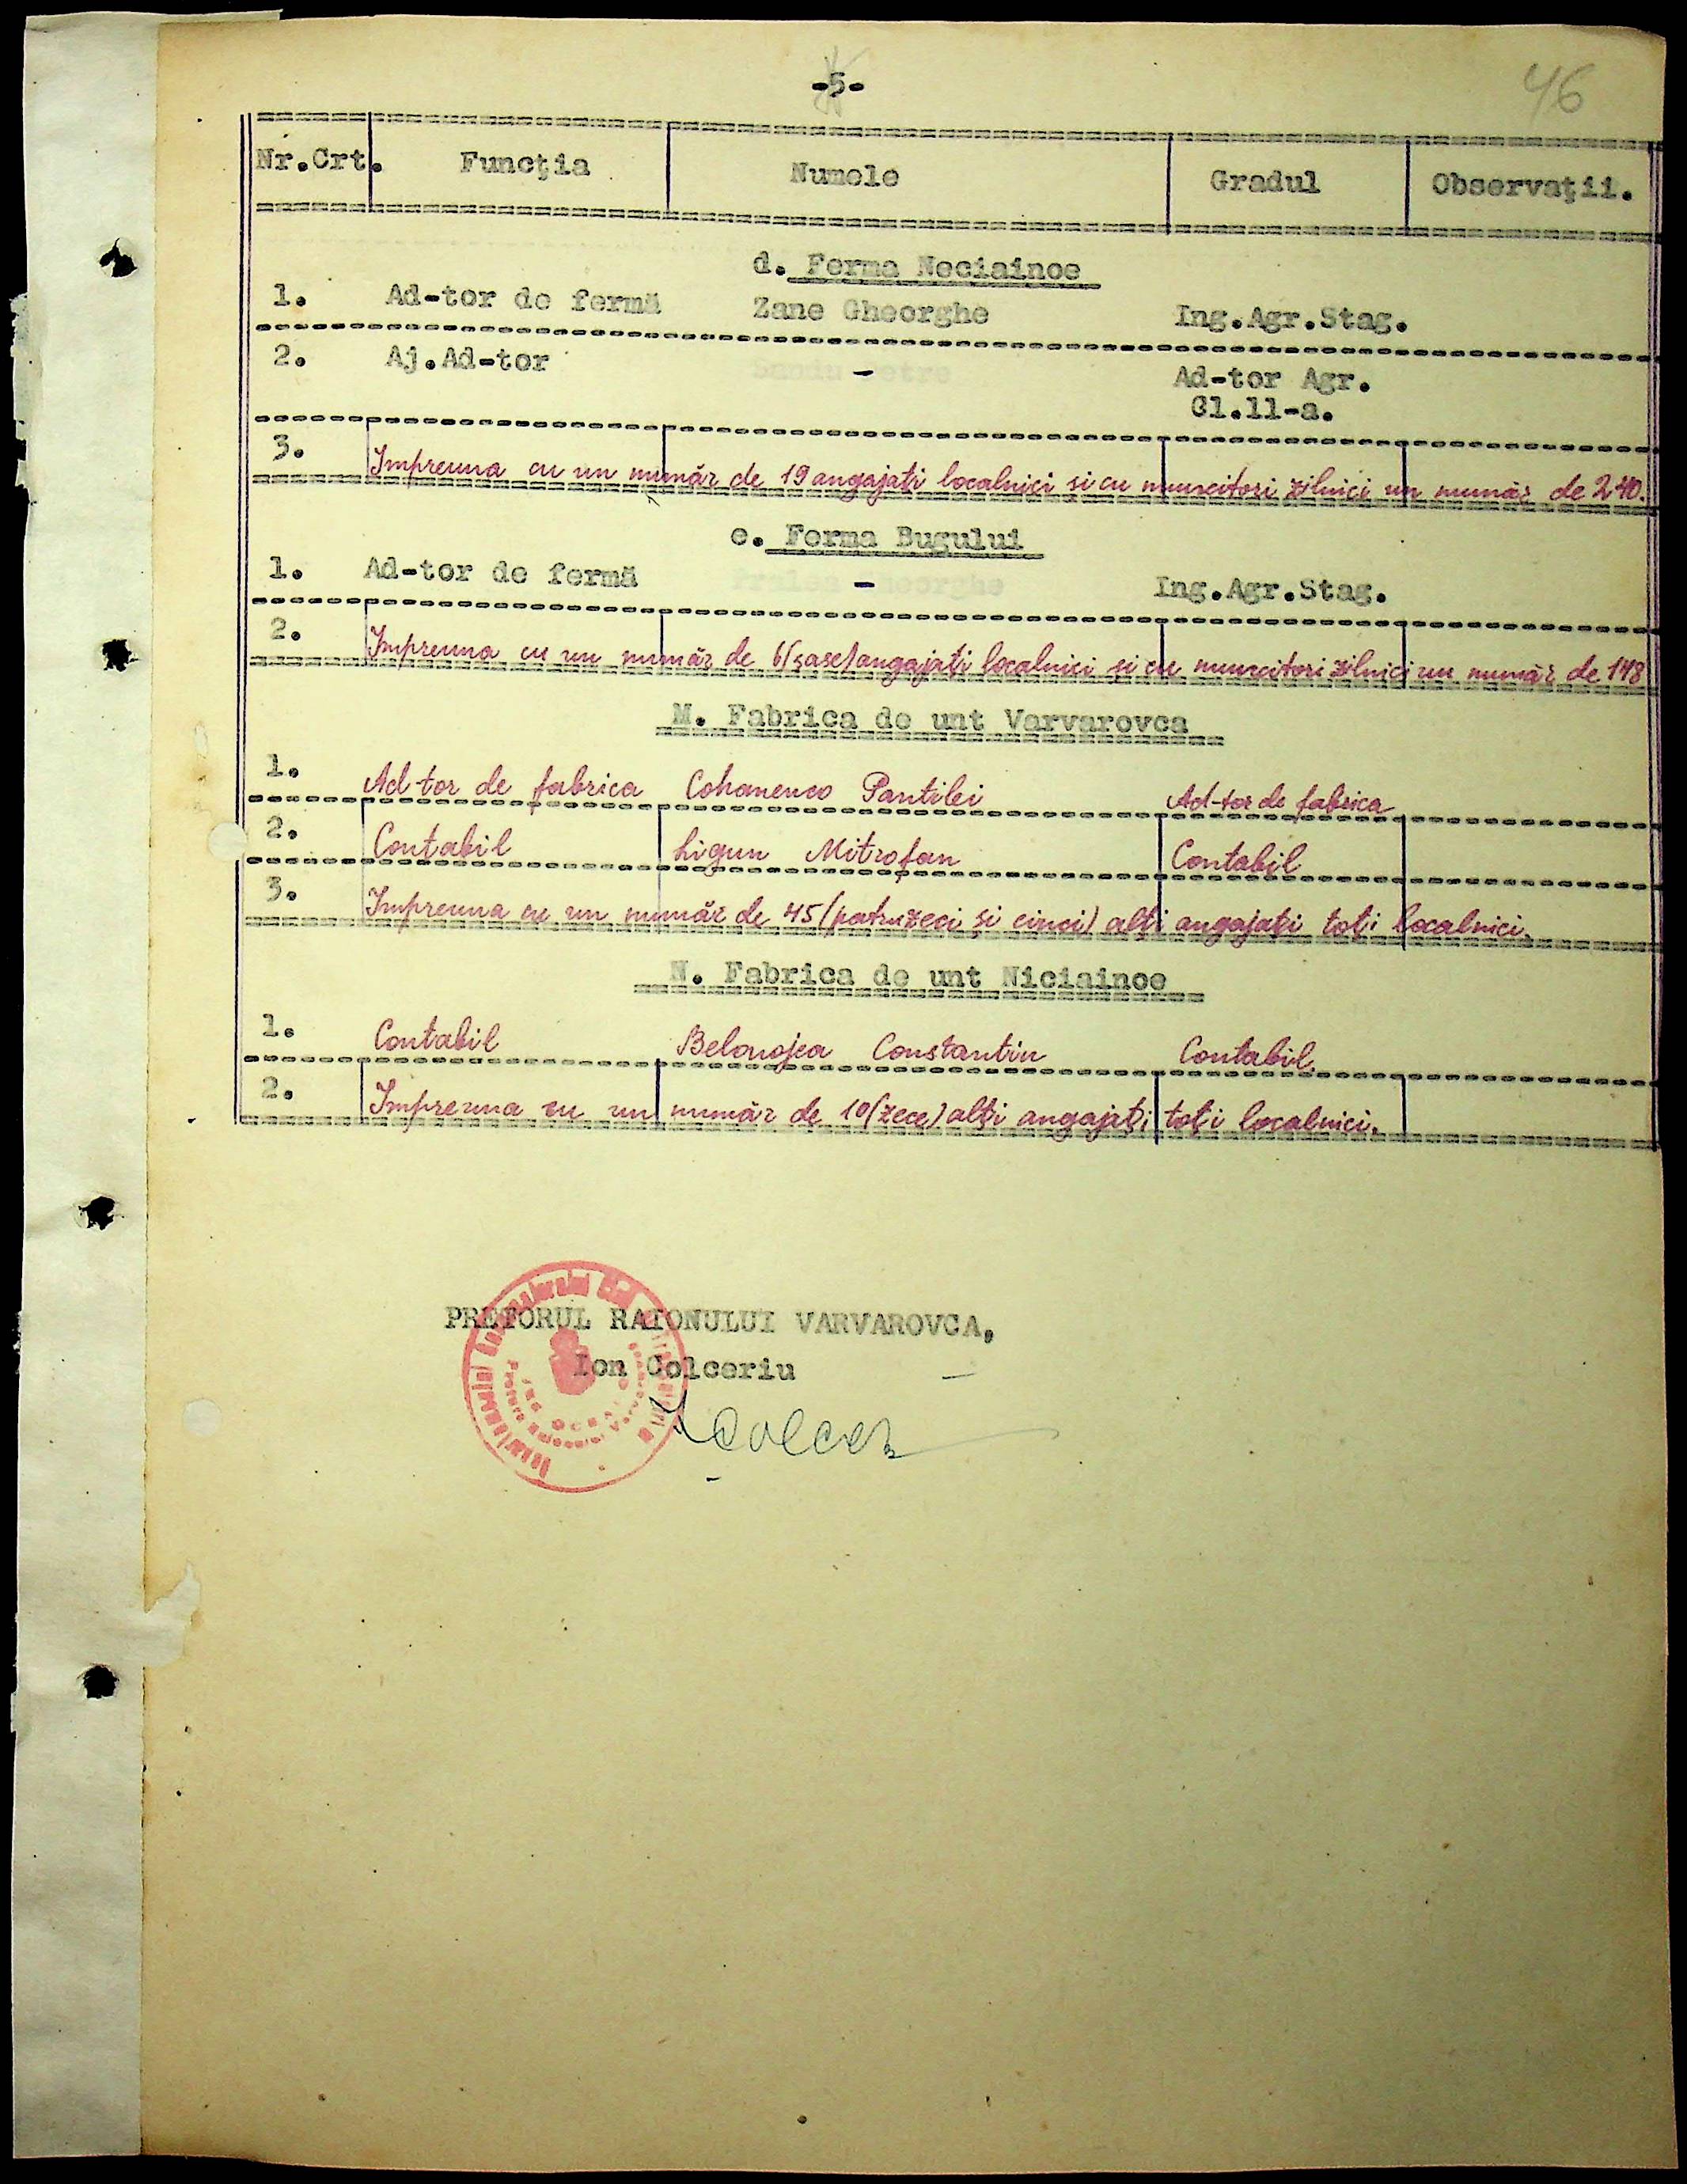 -5-
46
Nr.Crt. Funcţia Numele Gradul Observaţii.
d. Ferma Neciainoe
1. Ad-tor de fermă Zane Gheorghe Ing.Agr.Stag.
2. Aj.Ad-tor - Ad-tor Agr.
Cl.11-a.
3. Impreuna cu un număr de 19 angajaţi localnici şi cu muncitori zilnici un număr de 240.
e. Ferma Bugului
1. Ad-tor de fermă - Ing.Agr.Stag.
2. Impreuna cu un număr de 6(şase) angajaţi localnici şi cu muncitori zilnici un număr de 148
M. Fabrica de unt Varvarovca
1. Ad-tor de fabrica Cohanenco Pantilei Ad-tor de fabrica
2. Contabil Ligun Mitrofan Contabil
3. Impreuna cu un număr de 45 (patruzeci şi cinci) alţi angajaţi toţi localnici.
N. Fabrica de unt Niciainoe
1. Contabil Belonojea Constantin Contabil.
2. Impreuna cu un număr de 10 (zece) alţi angajaţi toţi localnici.
PRETORUL RAIONULUI VARVAROVCA,
Ion Colceriu